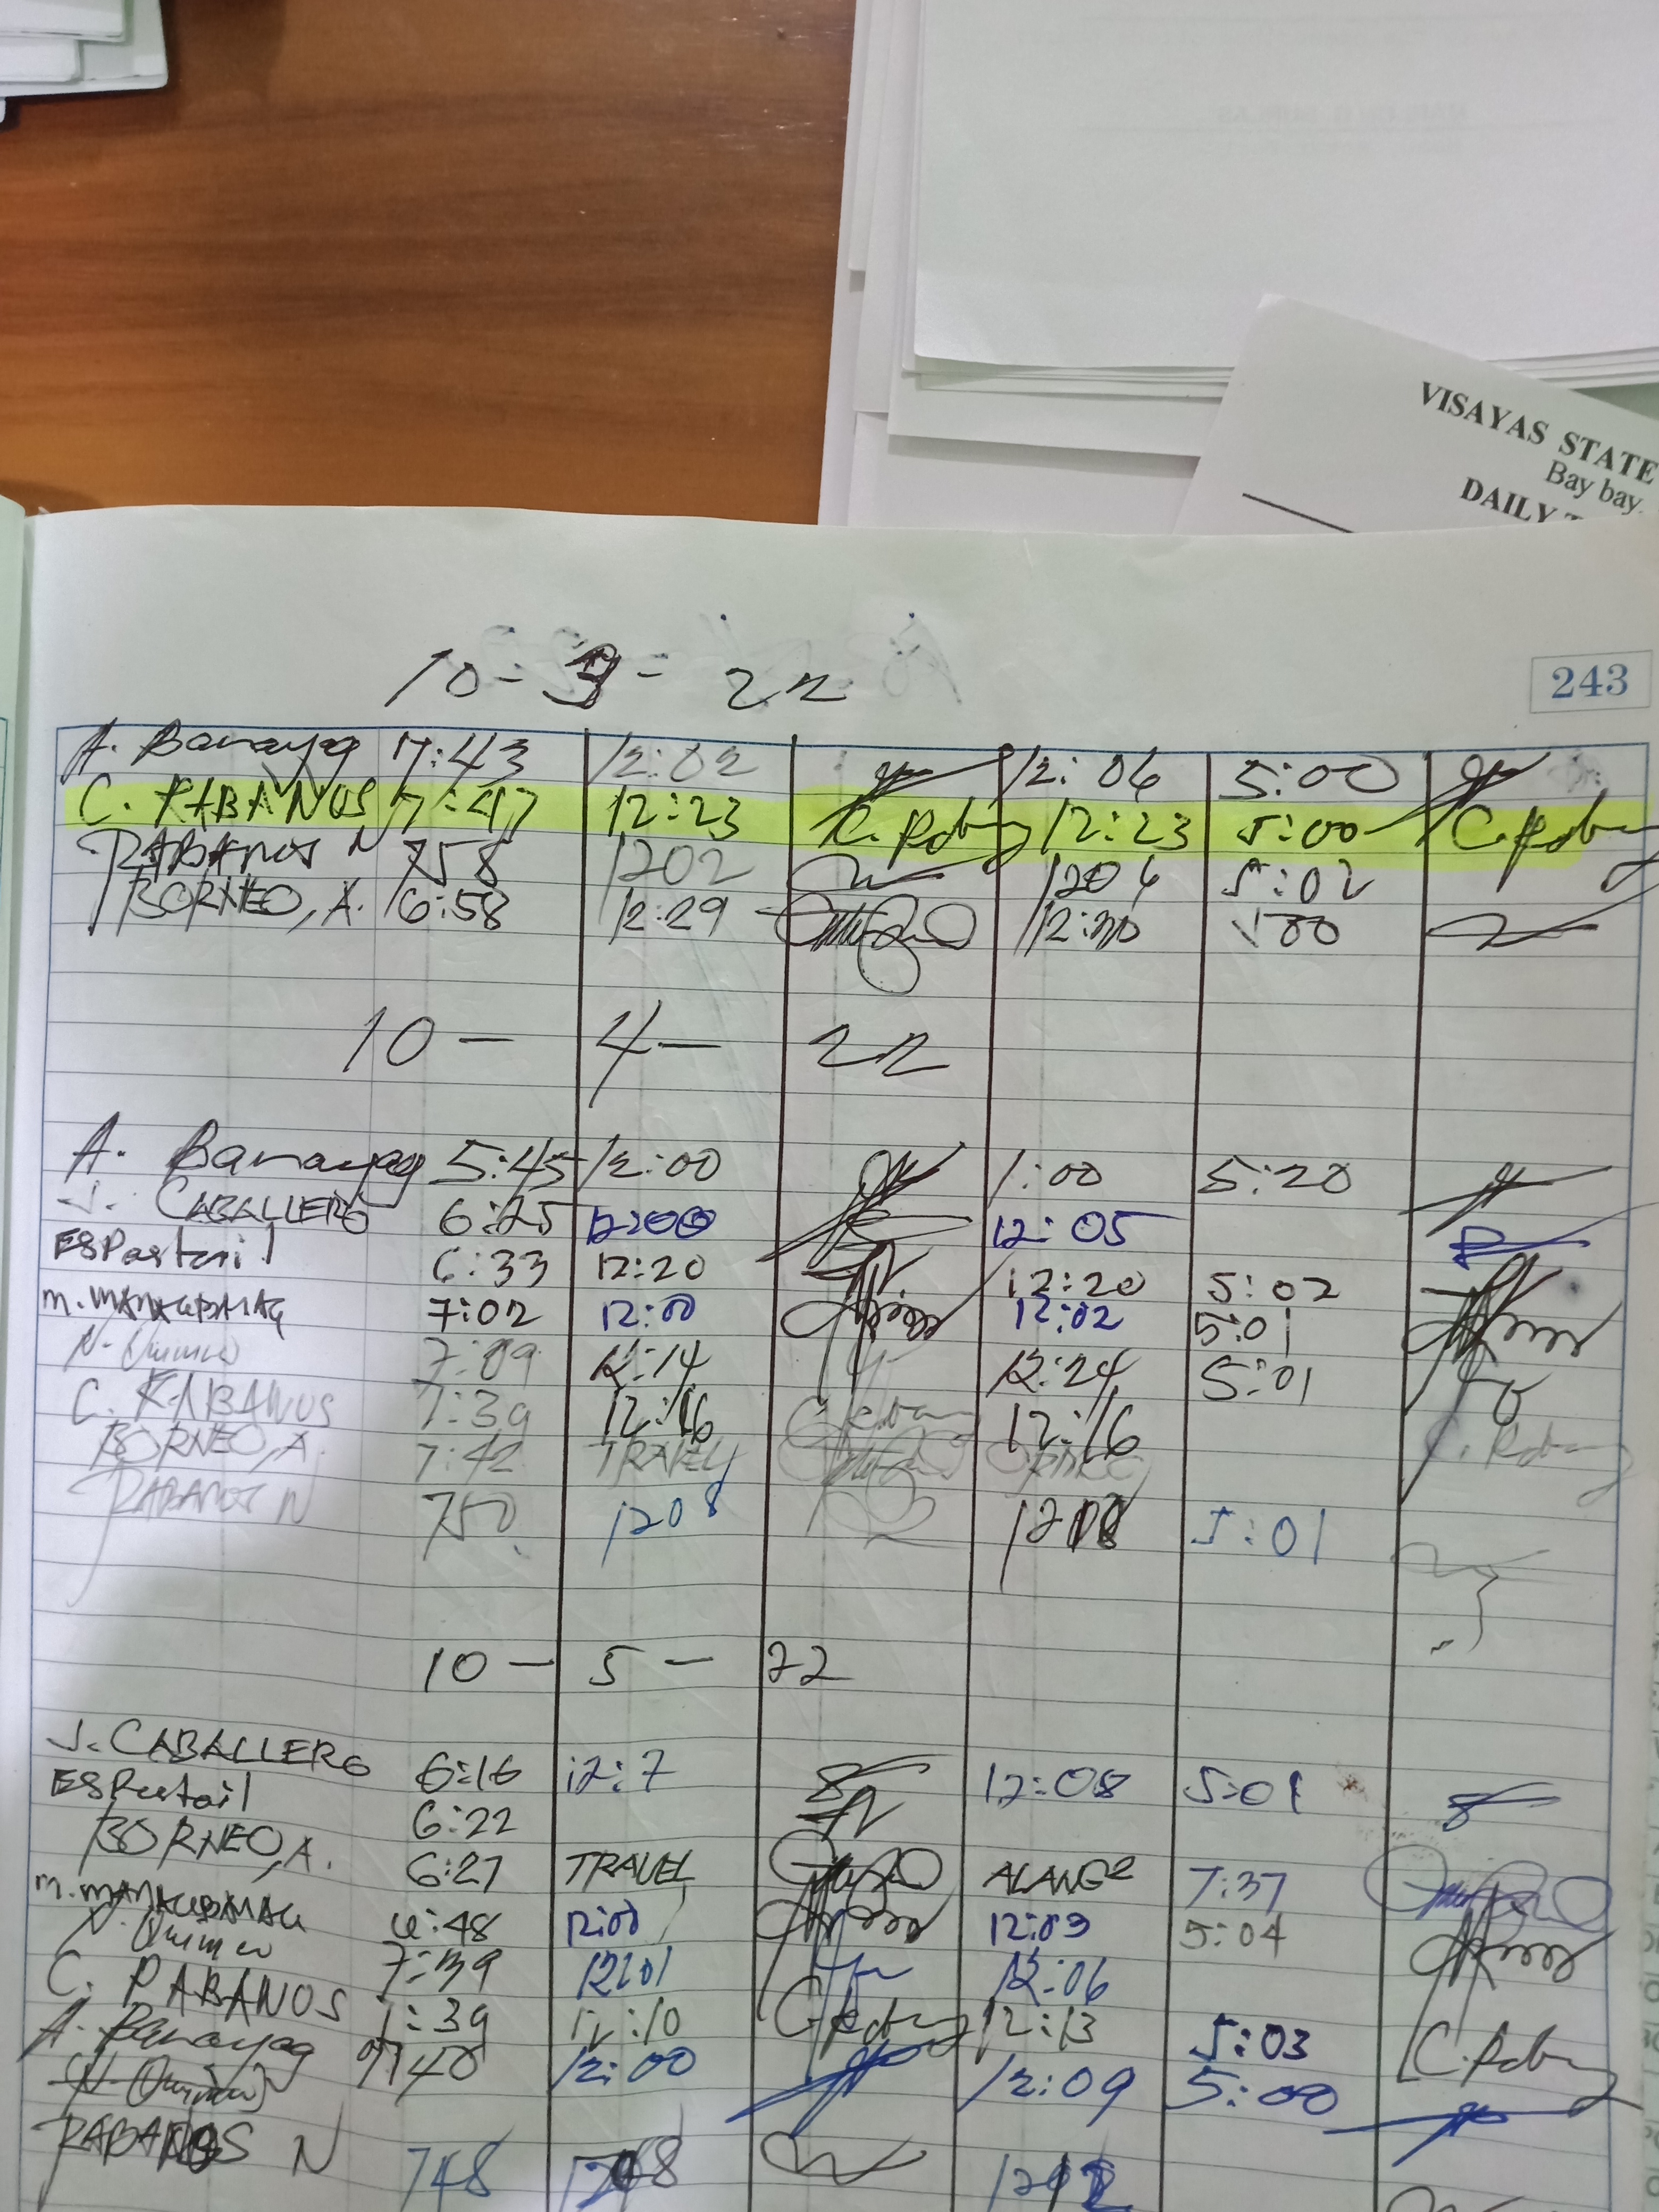 VISAYAS STATE
Bay bay.
DAILY
243
10 - 3 - 22
A. Banayag 7:43 12:02 12:06 5:00
C. RABANOS 7:47 12:23 C. Rabanos 12:23 5:00 C. Rabanos
RABANOS N 758 1202 1204 5:02
BORNEO, A. 6:58 12:29 12:30 500
10 - 4 - 22
A. Banayag 5:45 12:00 1:00 5:20
J. CABALLERO 6:25 12:00 12:05
ESPortail 6:33 12:20 12:20 5:02
7:02 12:00 12:02 5:01
7:09 12:14 12:24 5:01
C. RABANOS 7:39 12:16 12:16
BORNEO, A. 7:42 TRAVEL
RABANOS N 750 1208 1208 5:01
10 - 5 - 22
J. CABALLERO 6:16 12:7 12:08 5:01
ESPortail 6:22
BORNEO, A. 6:27 TRAVEL ALANG2 7:37
6:48 12:00 12:03 5:04
7:39 1201 12:06
C. RABANOS 7:39 12:10 12:13 5:03
A. Banayag 7:40 12:00 12:09 5:00
RABANOS N 748 1208 1212